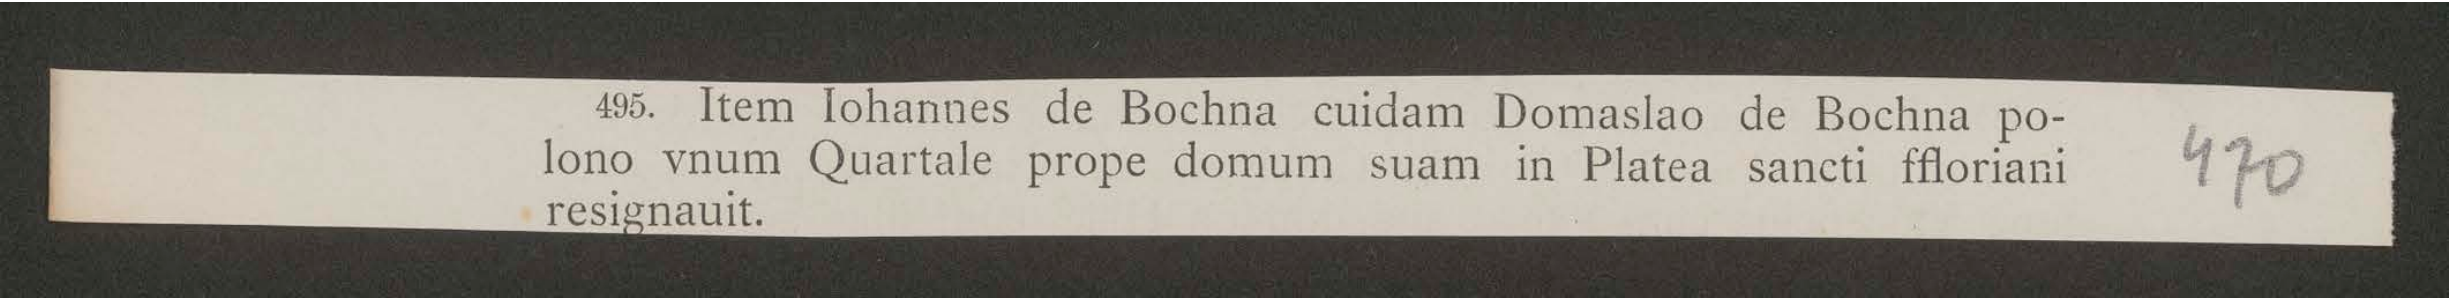 495. Item Iohannes de Bochna cuidam Domaslao de Bochna po-
lono vnum Quartale prope domum suam in Platea sancti ffloriani
resignauit.
470